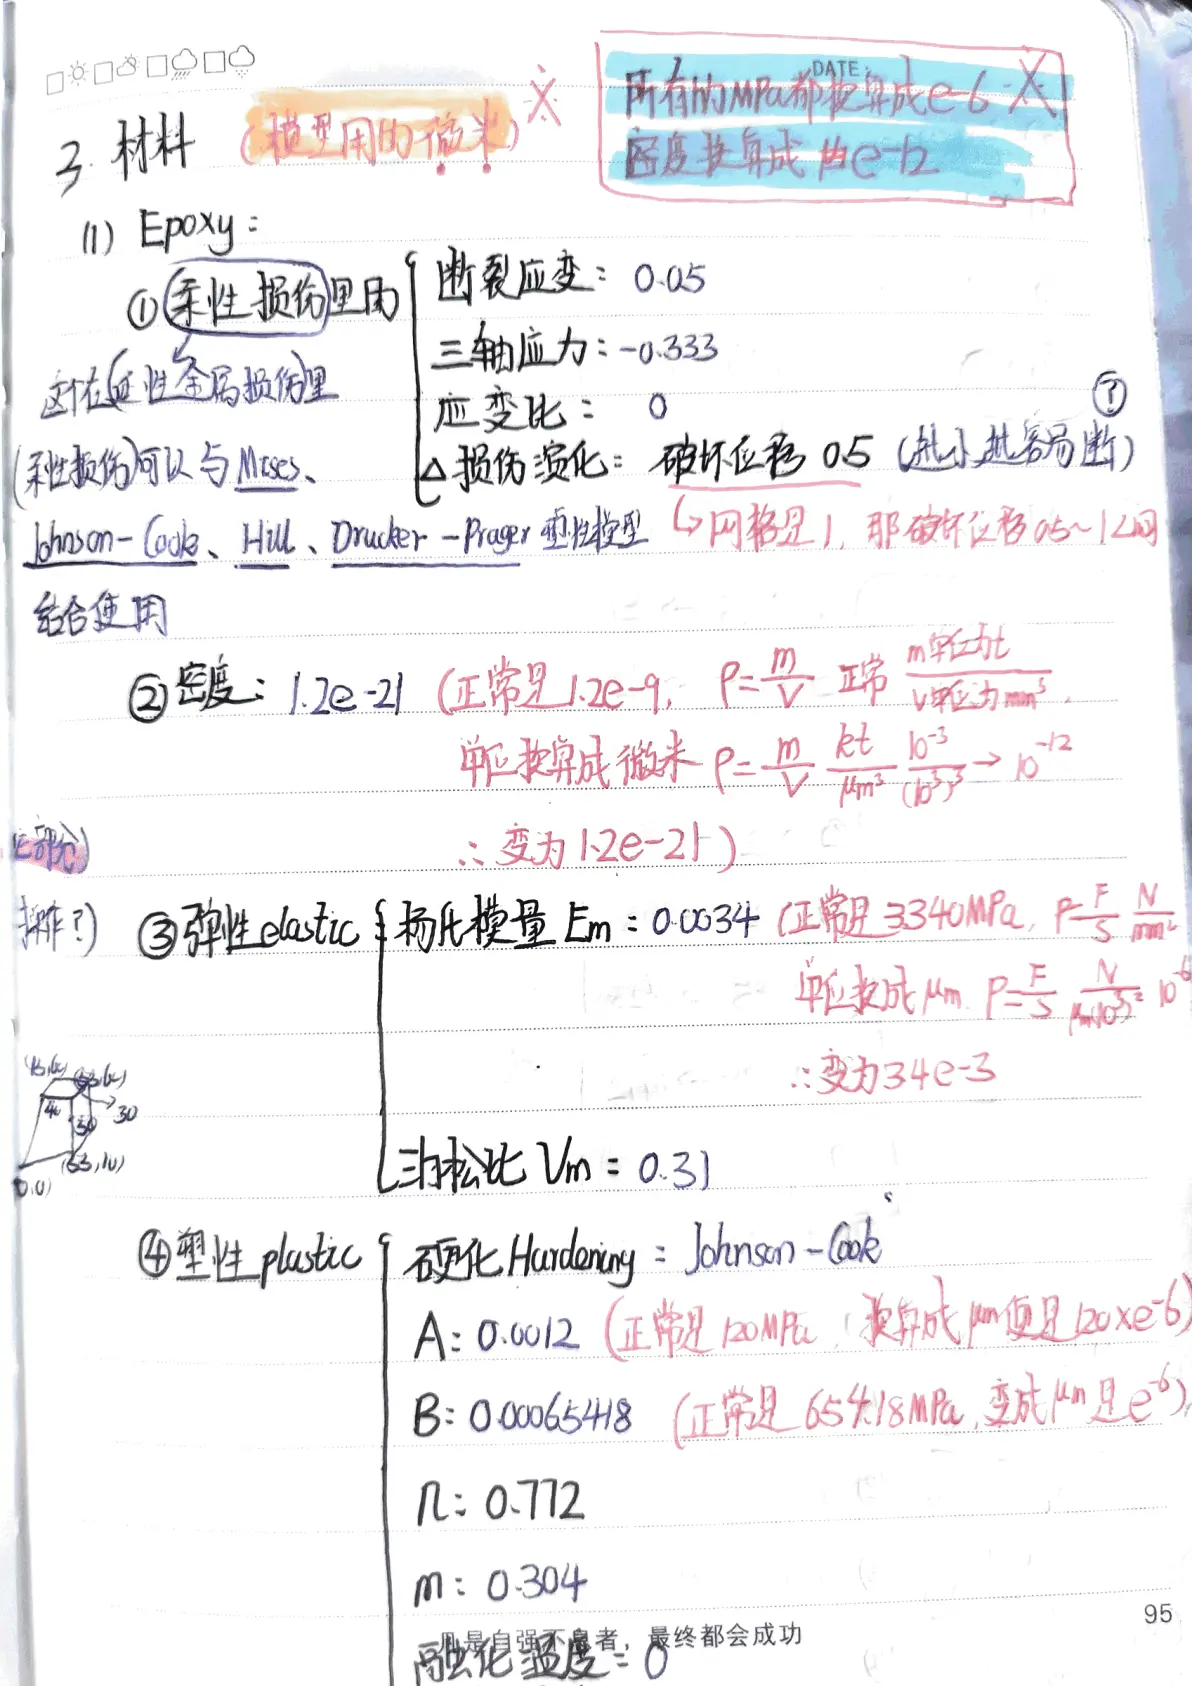 DATE:
所有的MPa都换算成e-6
密度换算成 e-12
3. 材料 (模型用的微米)
(1) Epoxy:
①柔性损伤里用
断裂应变: 0.05
三轴应力: -0.333
应变比: 0
△损伤演化: 破坏位移 0.5 (越小越容易断) ?
↳网格是1, 那破坏位移0.5~1之间
这个在(延性金属损伤)里
(柔性损伤)可以与Mises、
Johnson-Cook、Hill、Drucker-Prager塑性模型
结合使用
②密度: 1.2e-21 (正常是1.2e-9, ρ=m/V 正常 m单位为t/V单位为mm³.
单位换算成微米 ρ=m/V kt/μm³ 10⁻³/(10³)³→10⁻¹²
∴变为1.2e-21)
部分)
操作?)
③弹性elastic 杨氏模量 Em = 0.0034 (正常是3340MPa, P=F/S N/mm²
单位换成μm P=F/S N/μm(10³)² 10⁻⁶
∴变为34e-3
泊松比 Vm = 0.31
40
30
30
(33,10)
0,0)
④塑性plastic 硬化Hardening = Johnson-Cook
A: 0.0012 (正常是120MPa, 换算成μm便是120×e⁻⁶)
B: 0.00065418 (正常是654.18MPa, 变成μm是e⁻⁶)
n: 0.772
m: 0.304
融化温度=0
凡是自强不息者，最终都会成功
95